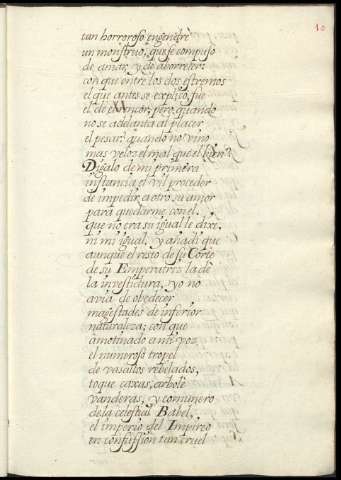 10
tan horroroso engendrè
un monstruo, que se compuso
de amar, y de aborrecer;
con que entre los dos estremos
el que antes se explicò, fue
el de el rencor; pero quando
no se adelanta al placer
el pesar? quando no vino
mas veloz el mal que el bien?
Digalo de mi primera
instancia el vil proceder
de impedir a otro su amor
para quedarme con el.
que no era su igual le dixe,
ni mi igual, y añadi que
aunque el resto de su Corte
de su Emperatriz la dè
la investidura, yo no
avia de obedecer
magestades de inferior
naturaleza; con que
amotinado a mi voz
el numeroso tropel
de vasallos rebelados,
toque caxas, arbolè
vanderas, y comunero
de la celestial Babel,
el imperio del Impireo
en confussion tan cruel